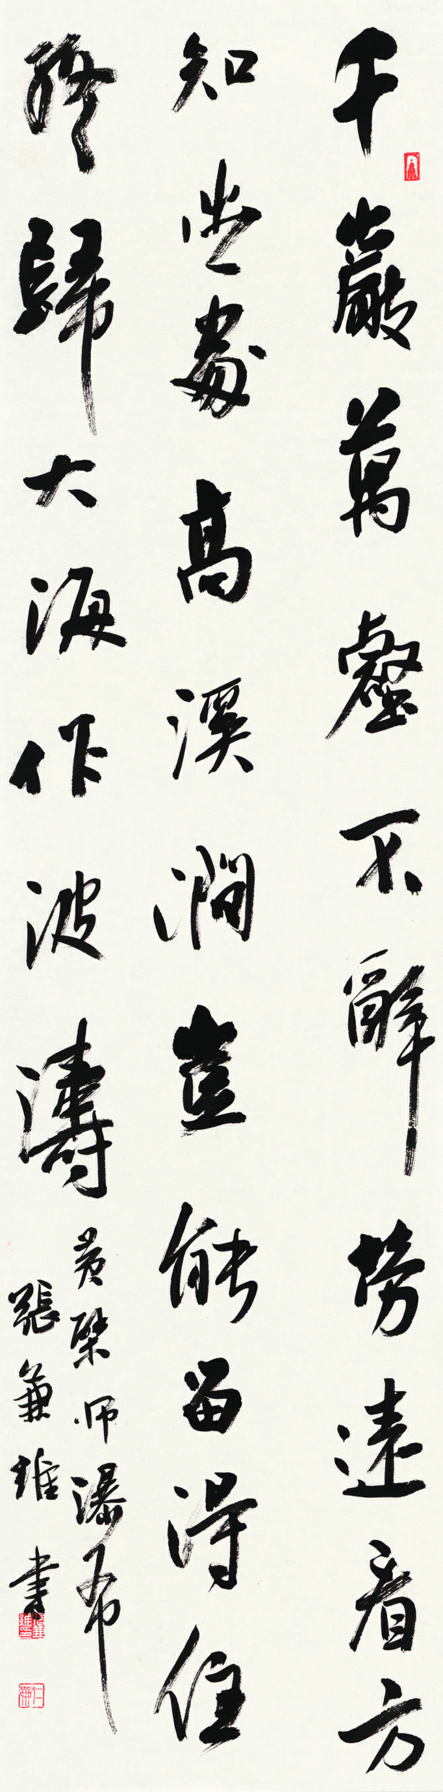 千巖萬壑不辭勞遠看方
知出處高溪澗豈能留得住
終歸大海作波濤
黃檗師瀑布
張兼維書